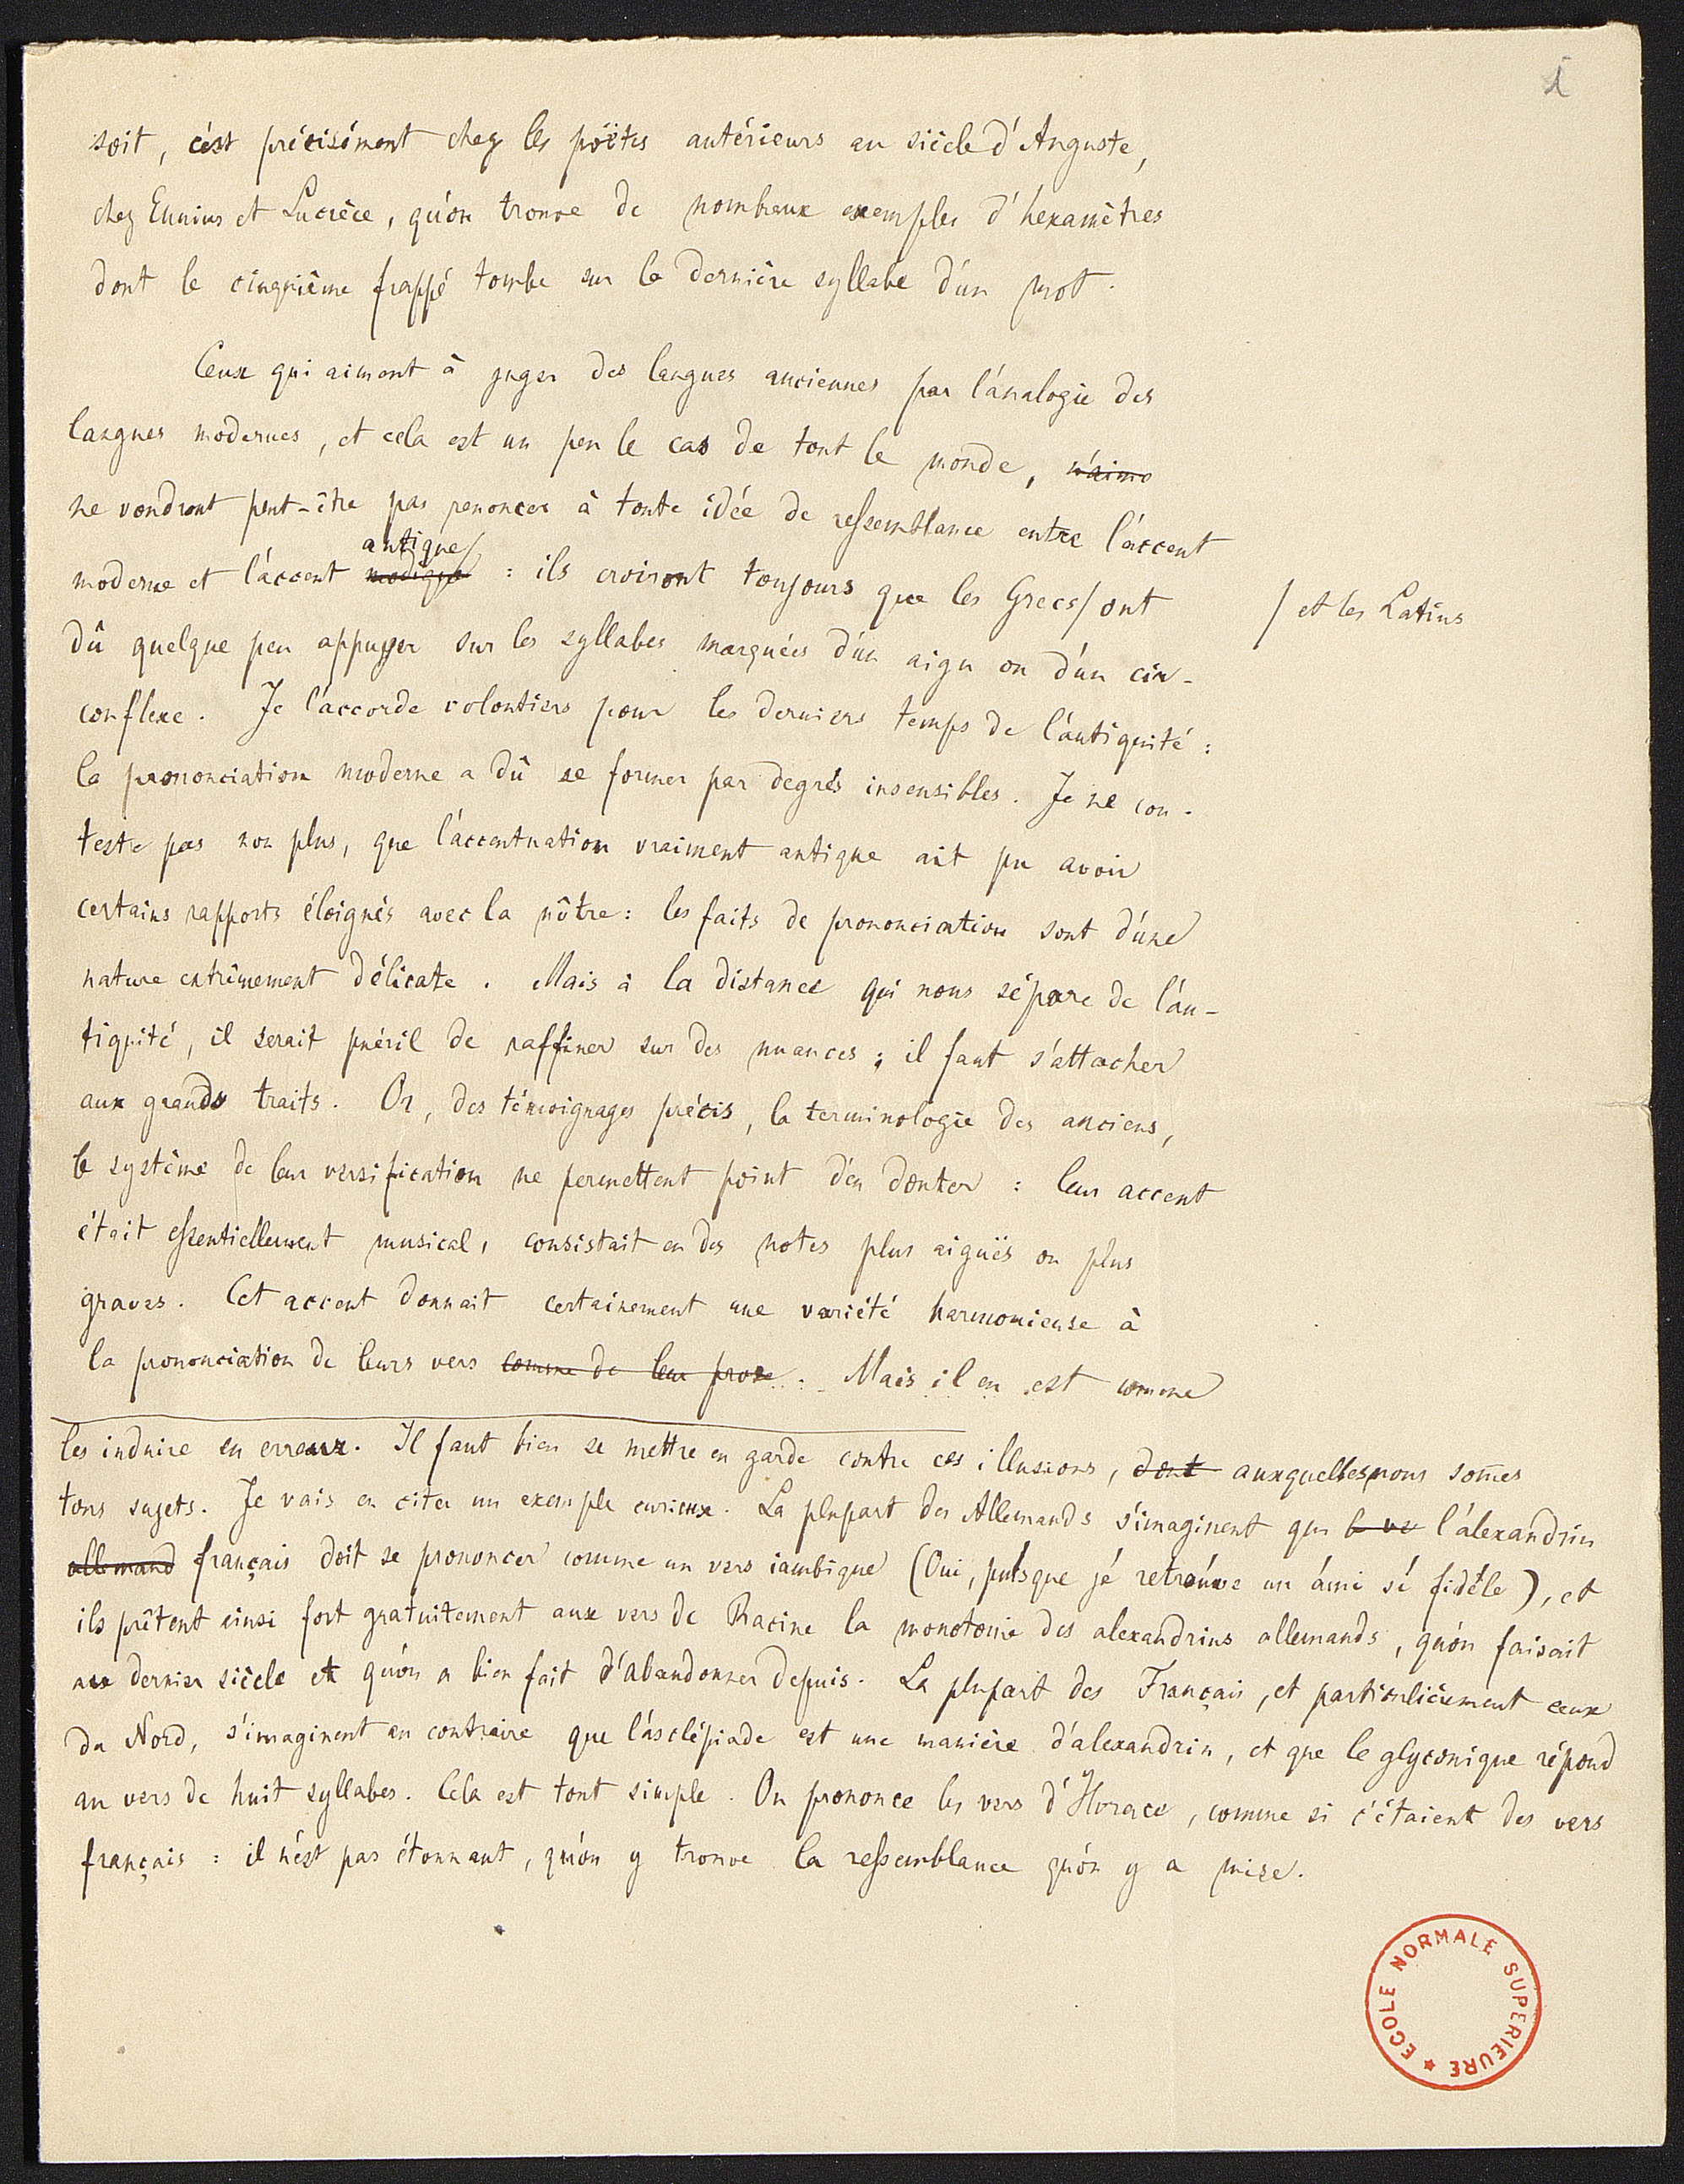 1
soit, c'est précisément chez les poëtes antérieurs au siècle d'Auguste,
chez Ennius et Lucrèce, qu'on trouve de nombreux exemples d'hexamètres
dont le cinquième frappé tombe sur la dernière syllabe d'un mot.
Ceux qui aiment à juger des langues anciennes par l'analogie des
langues modernes, et cela est un peu le cas de tout le monde, n'aime
ne voudront peut-être pas renoncer à toute idée de ressemblance entre l'accent
antique/
moderne et l'accent modique : ils croiront toujours que les Grecs/ ont
/ et les Latins
dû quelque peu appuyer sur les syllabes marquées d'un aigu ou d'un cir-
conflexe. Je l'accorde volontiers pour les derniers temps de l'antiquité :
la prononciation moderne a dû se former par degrés insensibles. Je ne con-
teste pas non plus, que l'accentuation vraiment antique ait pu avoir
certains rapports éloignés avec la nôtre : les faits de prononciation sont d'une
nature extrêmement délicate. Mais à la distance qui nous sépare de l'an-
tiquité, il serait puéril de raffiner sur des nuances ; il faut s'attacher
aux grands traits. Or, des témoignages précis, la terminologie des anciens,
le système de leur versification ne permettent point d'en douter : leur accent
était essentiellement musical, consistait en des notes plus aiguës ou plus
graves. Cet accent donnait certainement une variété harmonieuse à
la prononciation de leurs vers comme de leur prose. Mais il en est comme
les induire en erreur. Il faut bien se mettre en garde contre ces illusions, dont auxquelles nous som̄es
tous sujets. Je vais en citer un exemple curieux. La plupart des Allemands s'imaginent que le ve l'alexandrin
allemand français doit se prononcer comme un vers iambique (Oui, puísque jé retroúve un ámi sí fidéle), et
ils prêtent ainsi fort gratuitement aux vers de Racine la monotonie des alexandrins allemands, qu'on faisait
au dernier siècle et qu'on a bien fait d'abandonner depuis. La plupart des Français, et particulièrement ceux
du Nord, s'imaginent au contraire que l'asclépiade est une manière d'alexandrin, et que le glyconique répond
au vers de huit syllabes. Cela est tout simple. On prononce les vers d'Horace, comme si c'étaient des vers
français : il n'est pas étonnant, qu'on y trouve la ressemblance qu'on y a mise.
ECOLE NORMALE SUPERIEURE